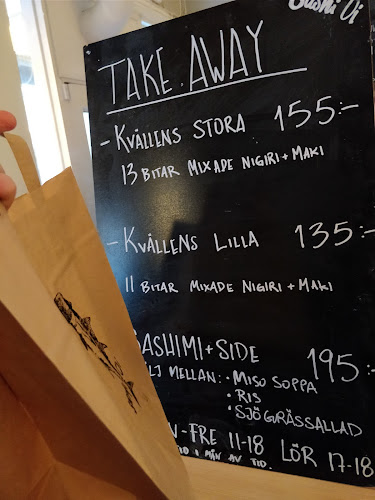 Sushi Oi
TAKE AWAY
- KVÄLLENS STORA 155:-
13 BITAR MIXADE NIGIRI + MAKI
- KVÄLLENS LILLA 135:-
11 BITAR MIXADE NIGIRI + MAKI
SASHIMI + SIDE 195:-
LJ MELLAN: • MISO SOPPA
• RIS
• SJÖGRÄSSALLAD
N - FRE 11-18 LÖR 17-18
I MÅN AV TID.